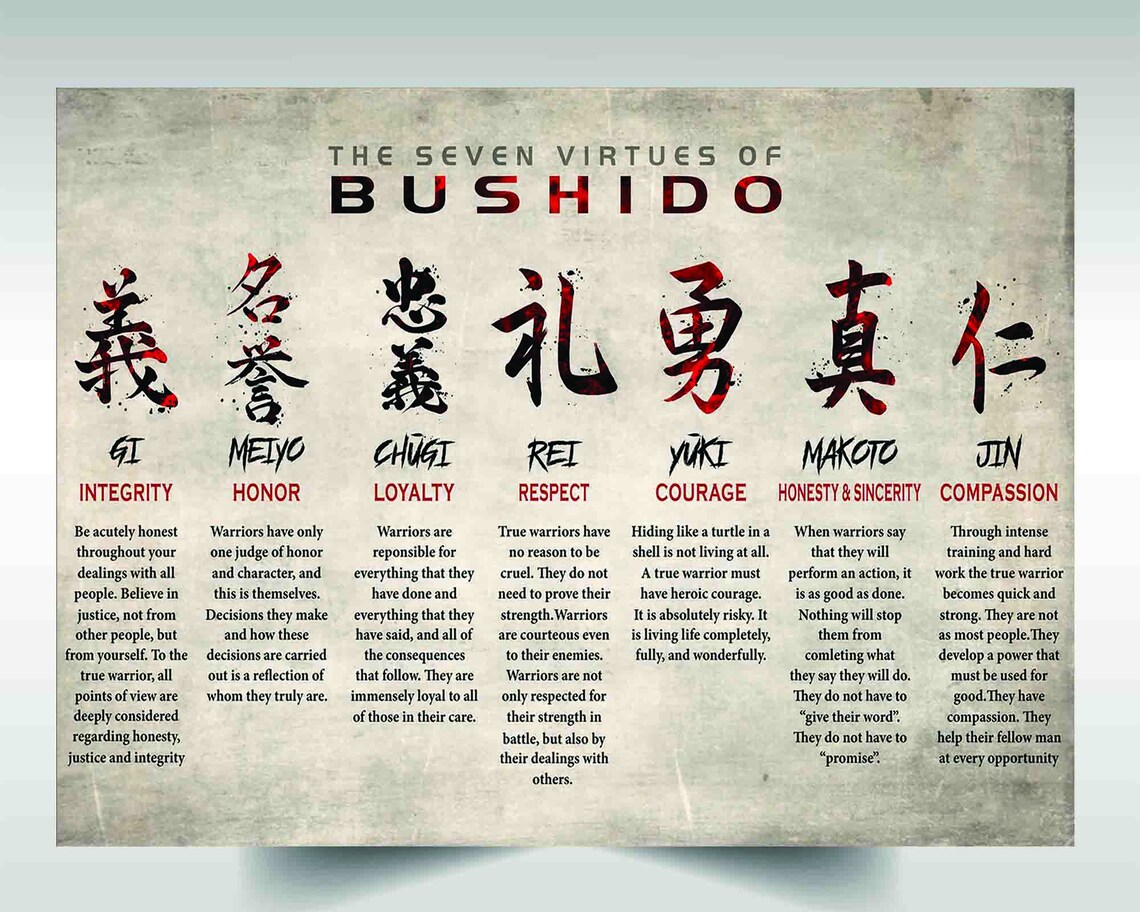 THE SEVEN VIRTUES OF
BUSHIDO
義
GI
INTEGRITY
Be acutely honest
throughout your
dealings with all
people. Believe in
justice, not from
other people, but
from yourself. To the
true warrior, all
points of view are
deeply considered
regarding honesty,
justice and integrity
名誉
MEIYO
HONOR
Warriors have only
one judge of honor
and character, and
this is themselves.
Decisions they make
and how these
decisions are carried
out is a reflection of
whom they truly are.
忠義
CHŪGI
LOYALTY
Warriors are
reponsible for
everything that they
have done and
everything that they
have said, and all of
the consequences
that follow. They are
immensely loyal to all
of those in their care.
礼
REI
RESPECT
True warriors have
no reason to be
cruel. They do not
need to prove their
strength.Warriors
are courteous even
to their enemies.
Warriors are not
only respected for
their strength in
battle, but also by
their dealings with
others.
勇
YŪKI
COURAGE
Hiding like a turtle in a
shell is not living at all.
A true warrior must
have heroic courage.
It is absolutely risky. It
is living life completely,
fully, and wonderfully.
真
MAKOTO
HONESTY & SINCERITY
When warriors say
that they will
perform an action, it
is as good as done.
Nothing will stop
them from
comleting what
they say they will do.
They do not have to
“give their word”.
They do not have to
“promise”.
仁
JIN
COMPASSION
Through intense
training and hard
work the true warrior
becomes quick and
strong. They are not
as most people.They
develop a power that
must be used for
good.They have
compassion. They
help their fellow man
at every opportunity